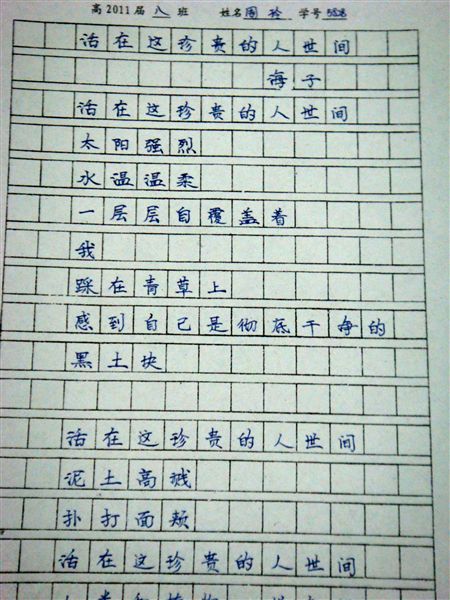 高2011届 八 班 姓名 周 学号
活在这珍贵的人世间
海子
活在这珍贵的人世间
太阳强烈
水温温柔
一层层自覆盖着
我
踩在青草上
感到自己是彻底干净的
黑土块
活在这珍贵的人世间
泥土高溅
扑打面颊
活在这珍贵的人世间